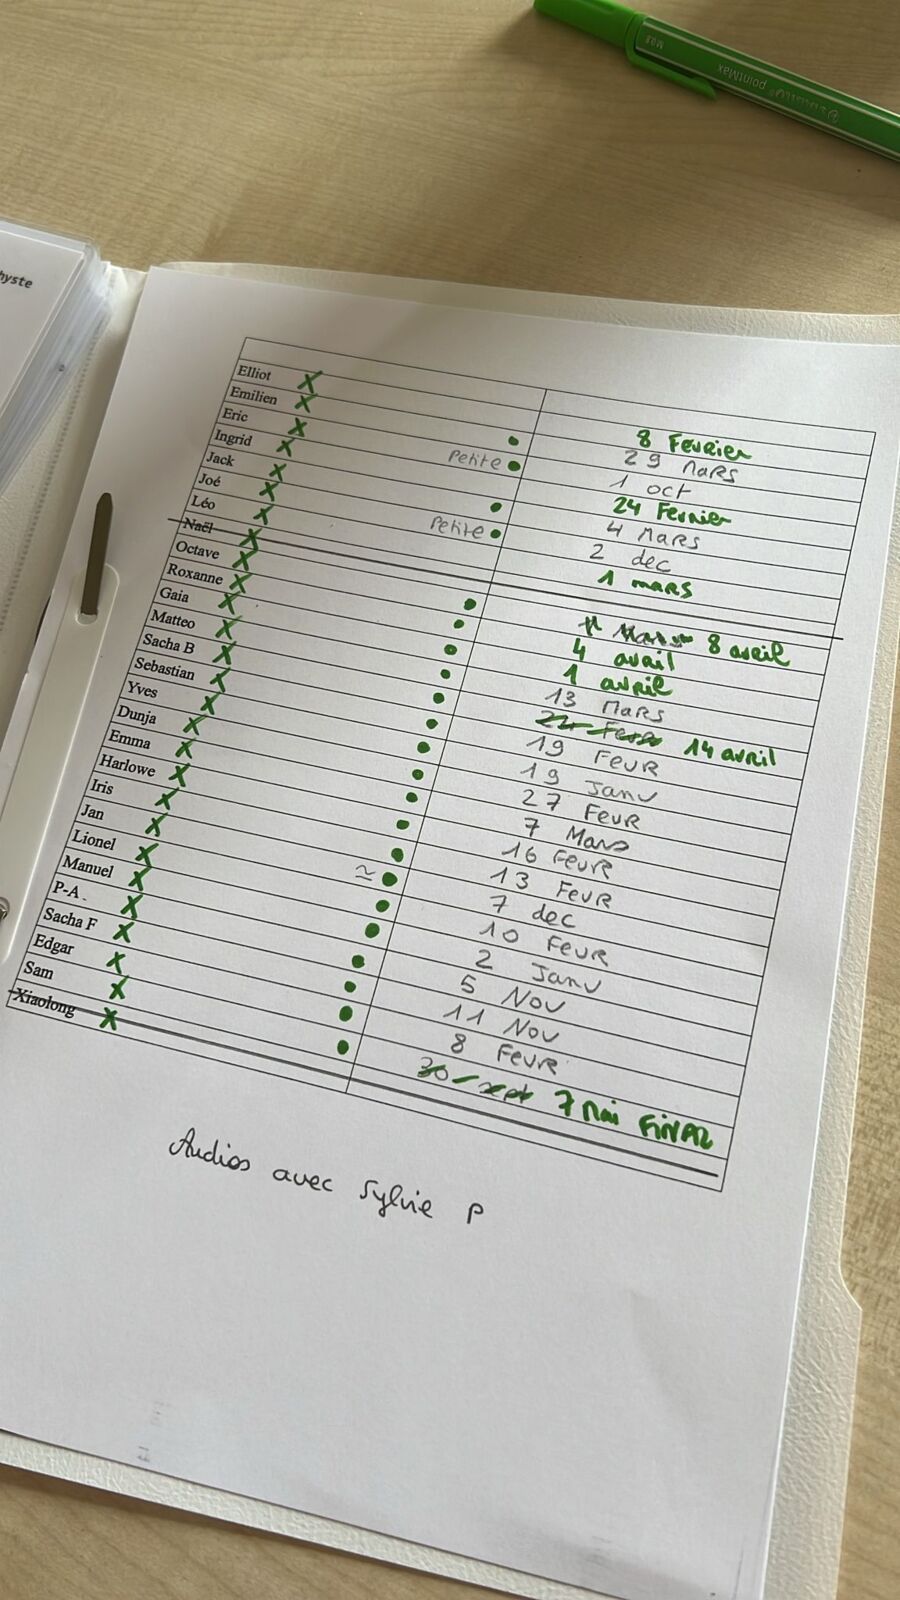 hyste
STABILO pointMax
M08
Elliot X 8 Fevrier
Emilien X 29 mars
Eric X Petite 1 oct
Ingrid X 24 Fevrier
Jack X 4 Mars
Joé X Petite 2 dec
Léo X 1 mars
Naël X
Octave X 8 avril
Roxanne X 4 avril
Gaia X 1 avril
Matteo X 13 Mars
Sacha B X 22 Fevr 14 avril
Sebastian X 19 Fevr
Yves X 19 Janv
Dunja X 27 Fevr
Emma X 7 Mars
Harlowe X 16 Fevr
Iris X 13 Fevr
Jan X ≈ 7 dec
Lionel X 10 Fevr
Manuel X 2 Janv
P-A. X 5 Nov
Sacha F X 11 Nov
Edgar X 8 Fevr
Sam X 30 sept 7 Mai FINAL
Xiaolong X
Audios avec Sylvie P